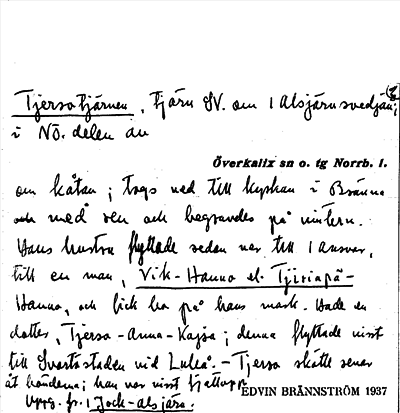 Tjersatjärnen, tjärn SV. om 1 Alsjärnsvedjan;
i NÖ. delen av
Överkalix sn o. tg Norrb. l.
om kåtan; togs ned till kyrkan i Bränna
och med ren och begravdes på vintern.
Hans hustru flyttade sedan ner till 1 Ansvar,
till en man, Vik-Hanno el. Tjiriapä-
Hanno, och fick bo på hans mark. Hade en
dotter, Tjersa-Anna-Kajsa; denna flyttade visst
till Svartöstaden vid Luleå. - Tjersa skötte renar
åt bönderna; han var visst fjällapp.
Uppg. fr. 1 Jock-alsjärn.
EDVIN BRÄNNSTRÖM 1937